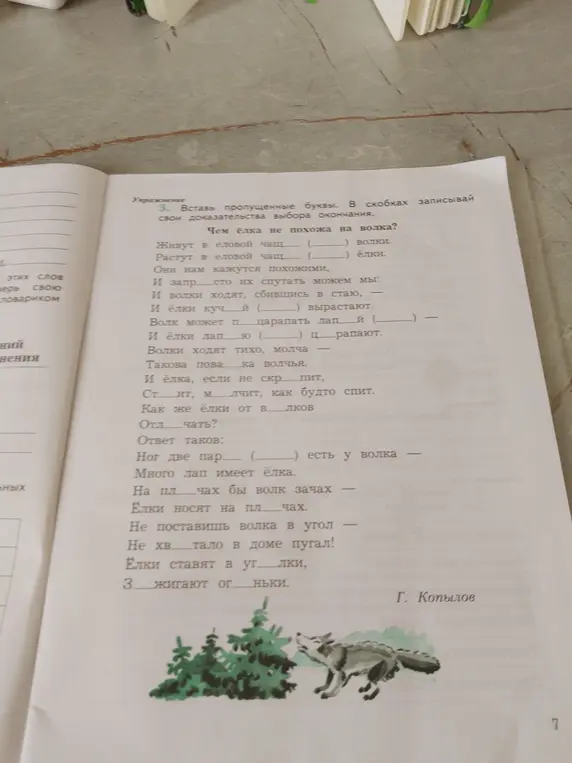 этих слов
перь свою
словариком
ний
нения
Упражнение
3. Вставь пропущенные буквы. В скобках записывай
свои доказательства выбора окончания.
Чем ёлка не похожа на волка?
Живут в еловой чащ___ (____) волки.
Растут в еловой чащ___ (____) ёлки.
Они нам кажутся похожими,
И запр___сто их спутать можем мы:
И волки ходят, сбившись в стаю, —
И ёлки куч___й (____) вырастают.
Волк может п___царапать лап___й (____) —
И ёлки лап___ю (____) ц___рапают.
Волки ходят тихо, молча —
Такова пова___ка волчья.
И ёлка, если не скр___пит,
Ст___ит, м___лчит, как будто спит.
Как же ёлки от в___лков
Отл___чать?
Ответ таков:
Ног две пар___ (____) есть у волка —
Много лап имеет ёлка.
На пл___чах бы волк зачах —
Ёлки носят на пл___чах.
Не поставишь волка в угол —
Не хв___тало в доме пугал!
Ёлки ставят в уг___лки,
З___жигают ог___ньки.
Г. Копылов
7